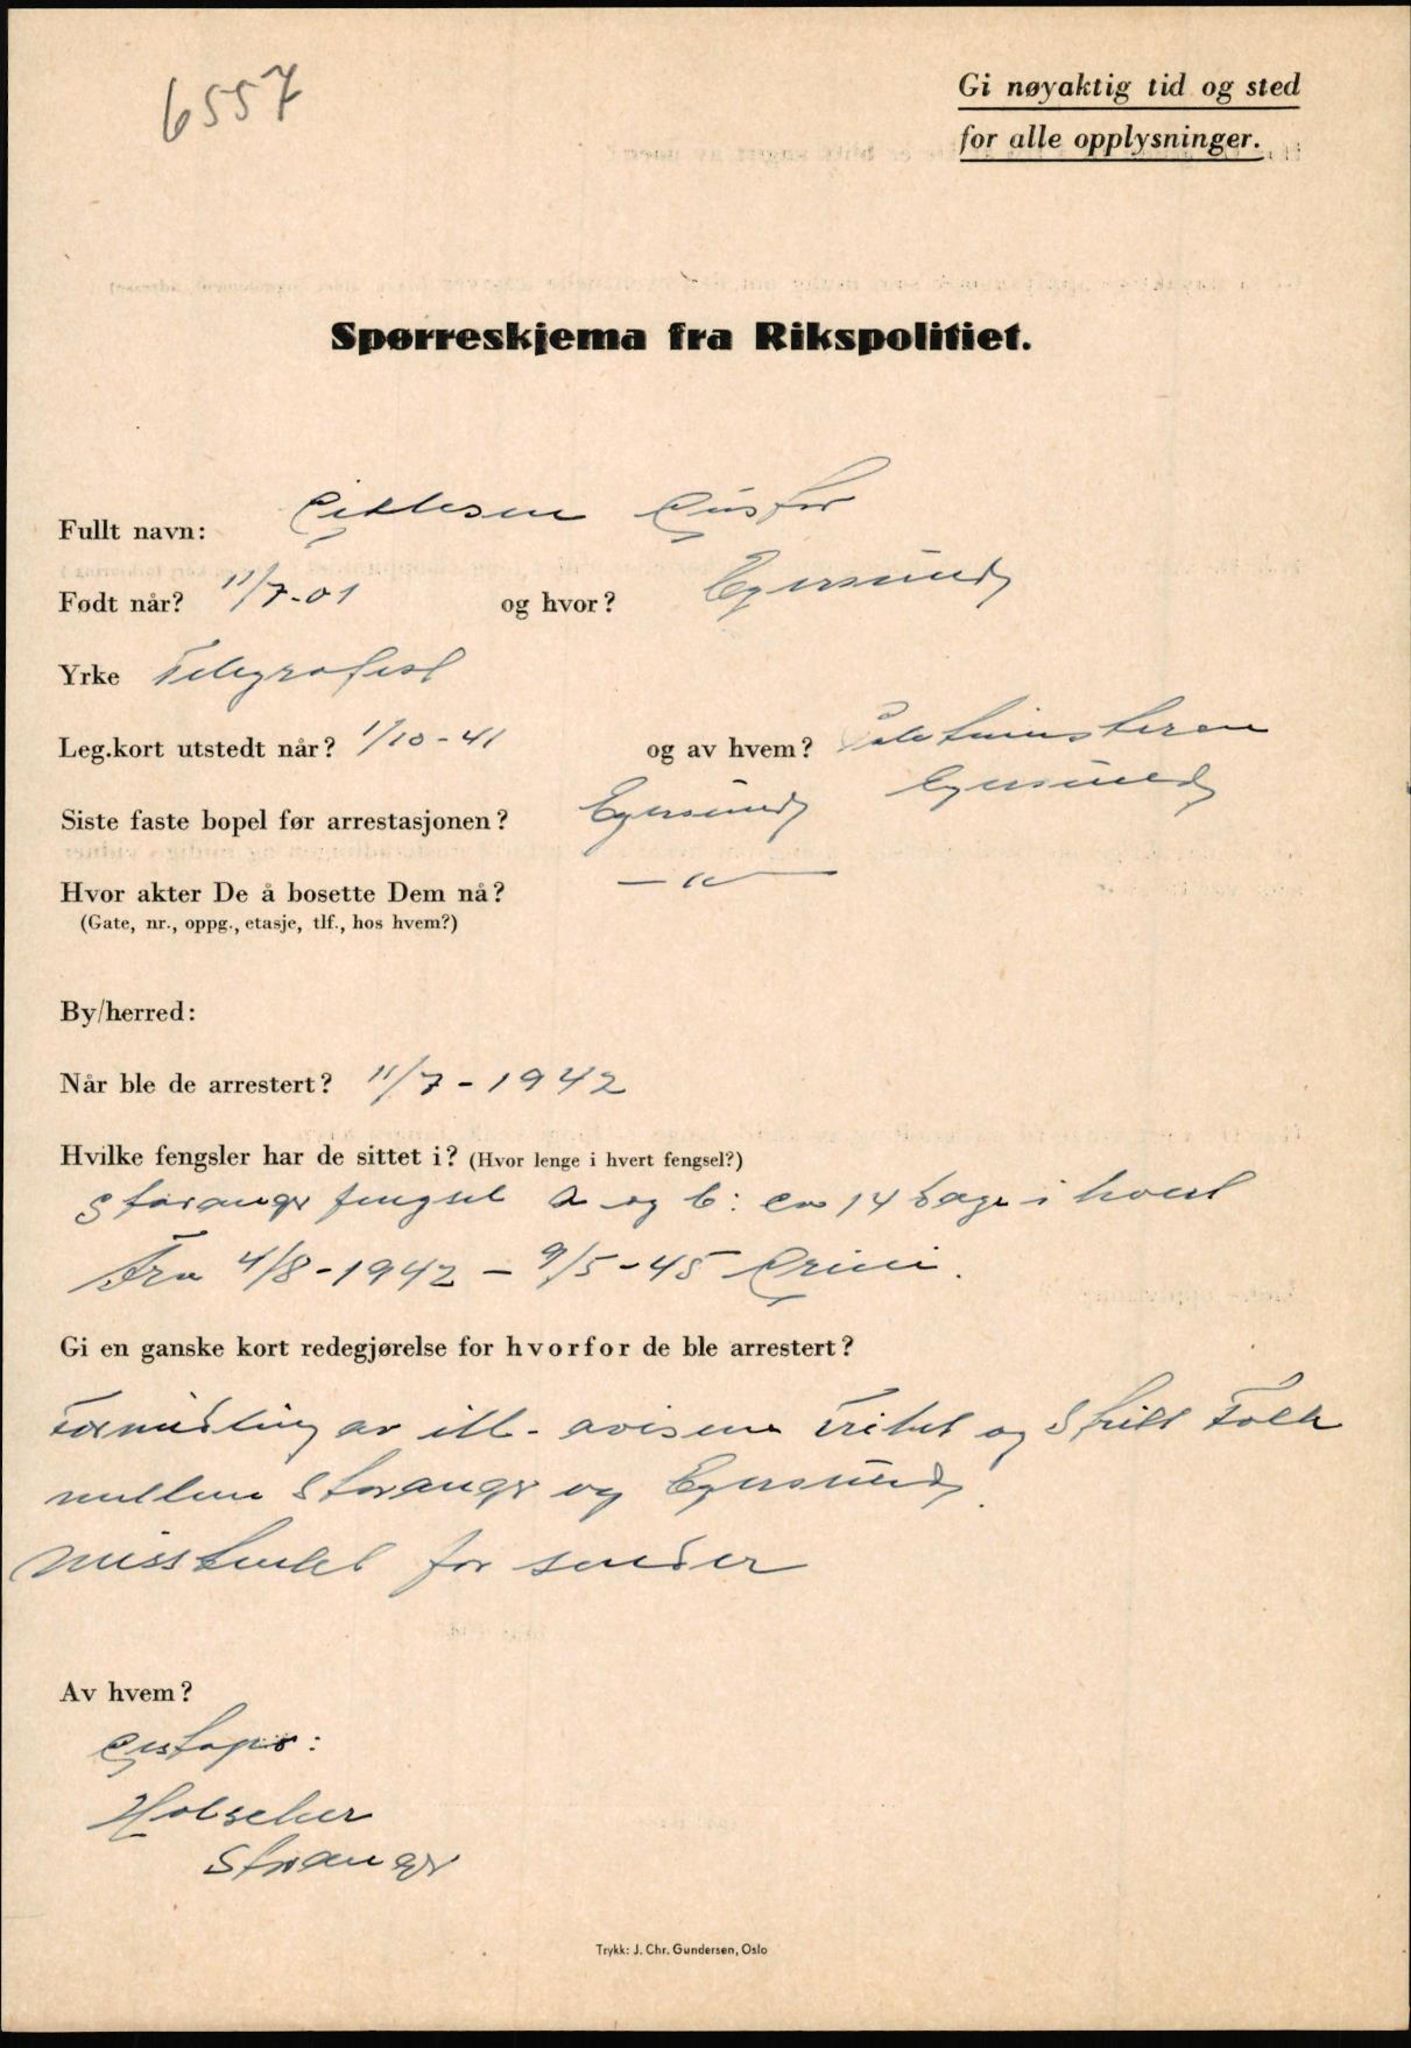 6557
Gi nøyaktig tid og sted
for alle opplysninger.
Spørreskjema fra Rikspolitiet.
Fullt navn:
Født når? 11/7-01 og hvor? Egersund
Yrke Telegrafist
Leg.kort utstedt når? 1/10-41 og av hvem?
Egersund
Siste faste bopel før arrestasjonen? Egersund
Hvor akter De å bosette Dem nå? — " —
(Gate, nr., oppg., etasje, tlf., hos hvem?)
By/herred:
Når ble de arrestert? 11/7-1942
Hvilke fengsler har de sittet i? (Hvor lenge i hvert fengsel?)
Stavanger fengsel A og B: ca 14 dage i hvert
Fra 4/8-1942 - 9/5-45 Grini.
Gi en ganske kort redegjørelse for hvorfor de ble arrestert?
Formidling av ill. avisene Frihet og Fritt Folk
mellem Stavanger og Egersund
Misstenkt for sender
Av hvem?
Gestapo:
Holscher
Stavanger
Trykk: J. Chr. Gundersen, Oslo